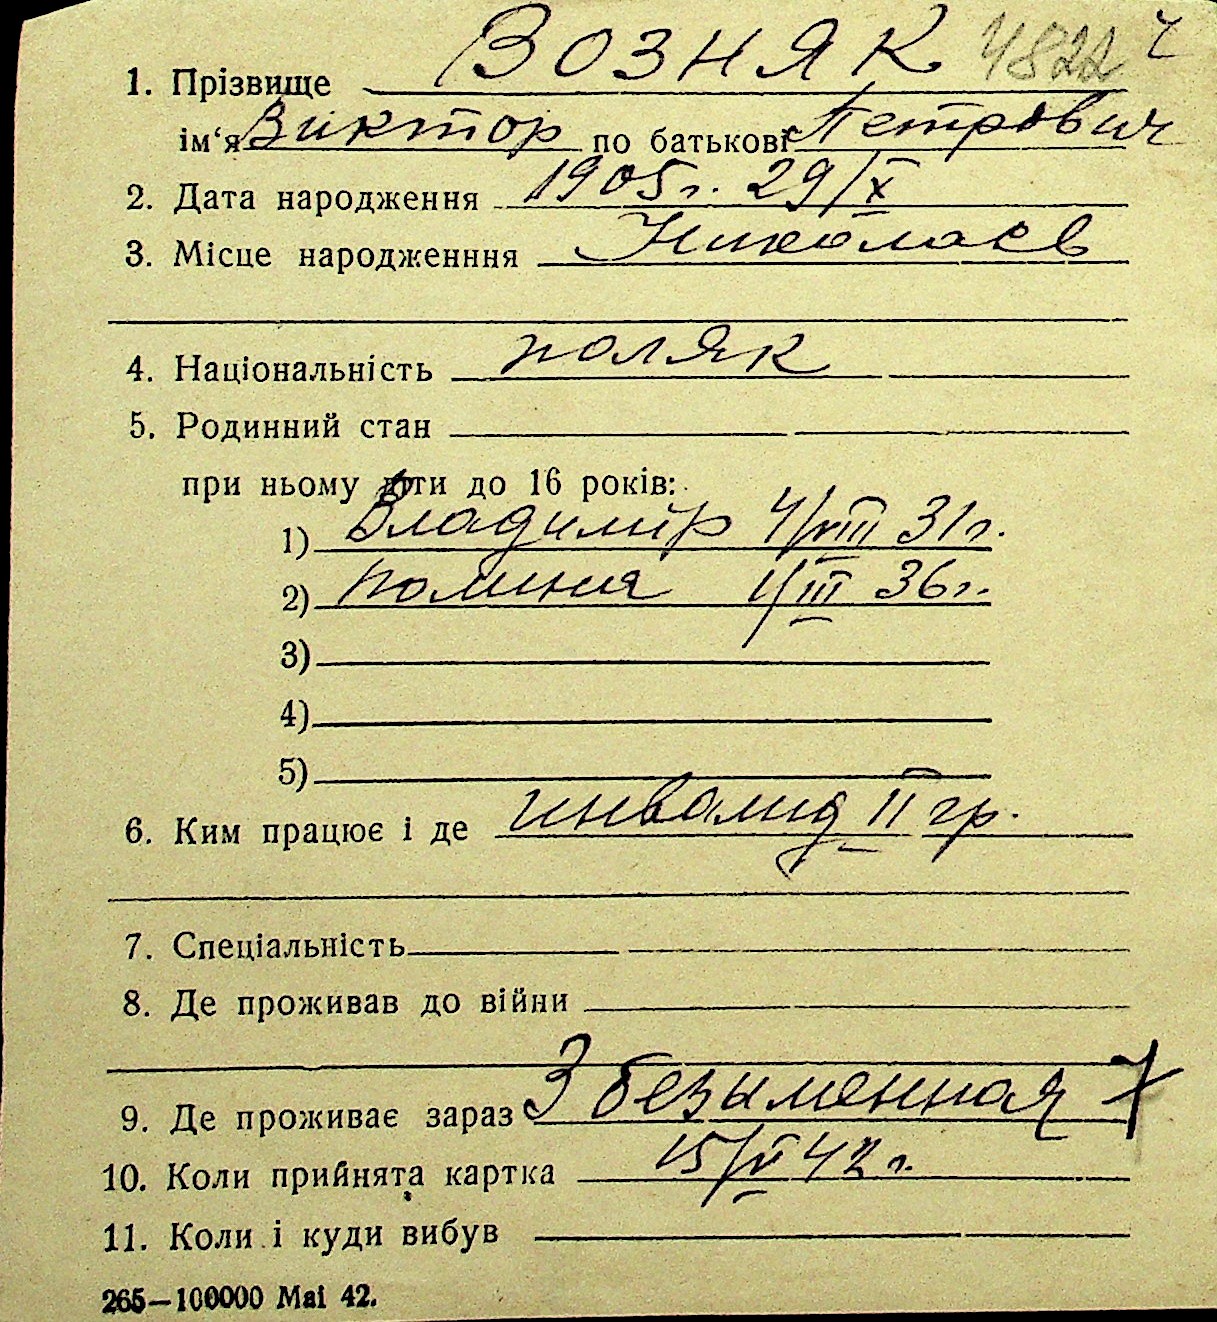 1. Прізвище ВОЗНЯК 4822 ч
ім‘я Виктор по батькові Петрович
2. Дата народження 1905 г. 29/X
3. Місце народженння Николаев
4. Національність поляк
5. Родинний стан
при ньому діти до 16 років:
1) Владимир 4/VIII 31 г.
2) 1/III 36 г.
3)
4)
5)
6. Ким працює і де инвалид II гр.
7. Спеціальність
8. Де проживав до війни
9. Де проживає зараз 3 безыменная 7
10. Коли прийнята картка 15/VI 42 г.
11. Коли і куди вибув
265—100000 Маі 42.